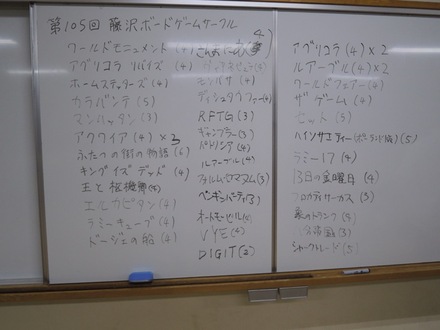 第105回 藤沢ボードゲームサークル
ワールドモニュメント (4)
アグリコラ リバイズ (4)
ホームステッダーズ (4)
カラバンデ (5)
マンハッタン (3)
アクワイア (4) ×3
ふたつの街の物語 (6)
キングイズデッド (4)
王と枢機卿 (4)
エルカピタン (4)
ラミーキューブ (4)
ドージェの船 (4)
モンバサ (4)
RFTG (3)
ギャンブラー (3)
パトリツィア (4)
ルアーブル (4)
フォルム・ロマヌム (3)
ペンギンパーティ (3)
オートモービル (4)
VYE (4)
DIGIT (2)
アグリコラ (4) ×2
ルアーブル (4) ×2
ワールドフェアー (4)
ザ ゲーム (4)
セット (5)
ハインツサエティー (5)
ラミー17 (4)
13日の金曜日 (4)
フロカティサーカス (3)
象のトランク (4)
シャークトレード (5)